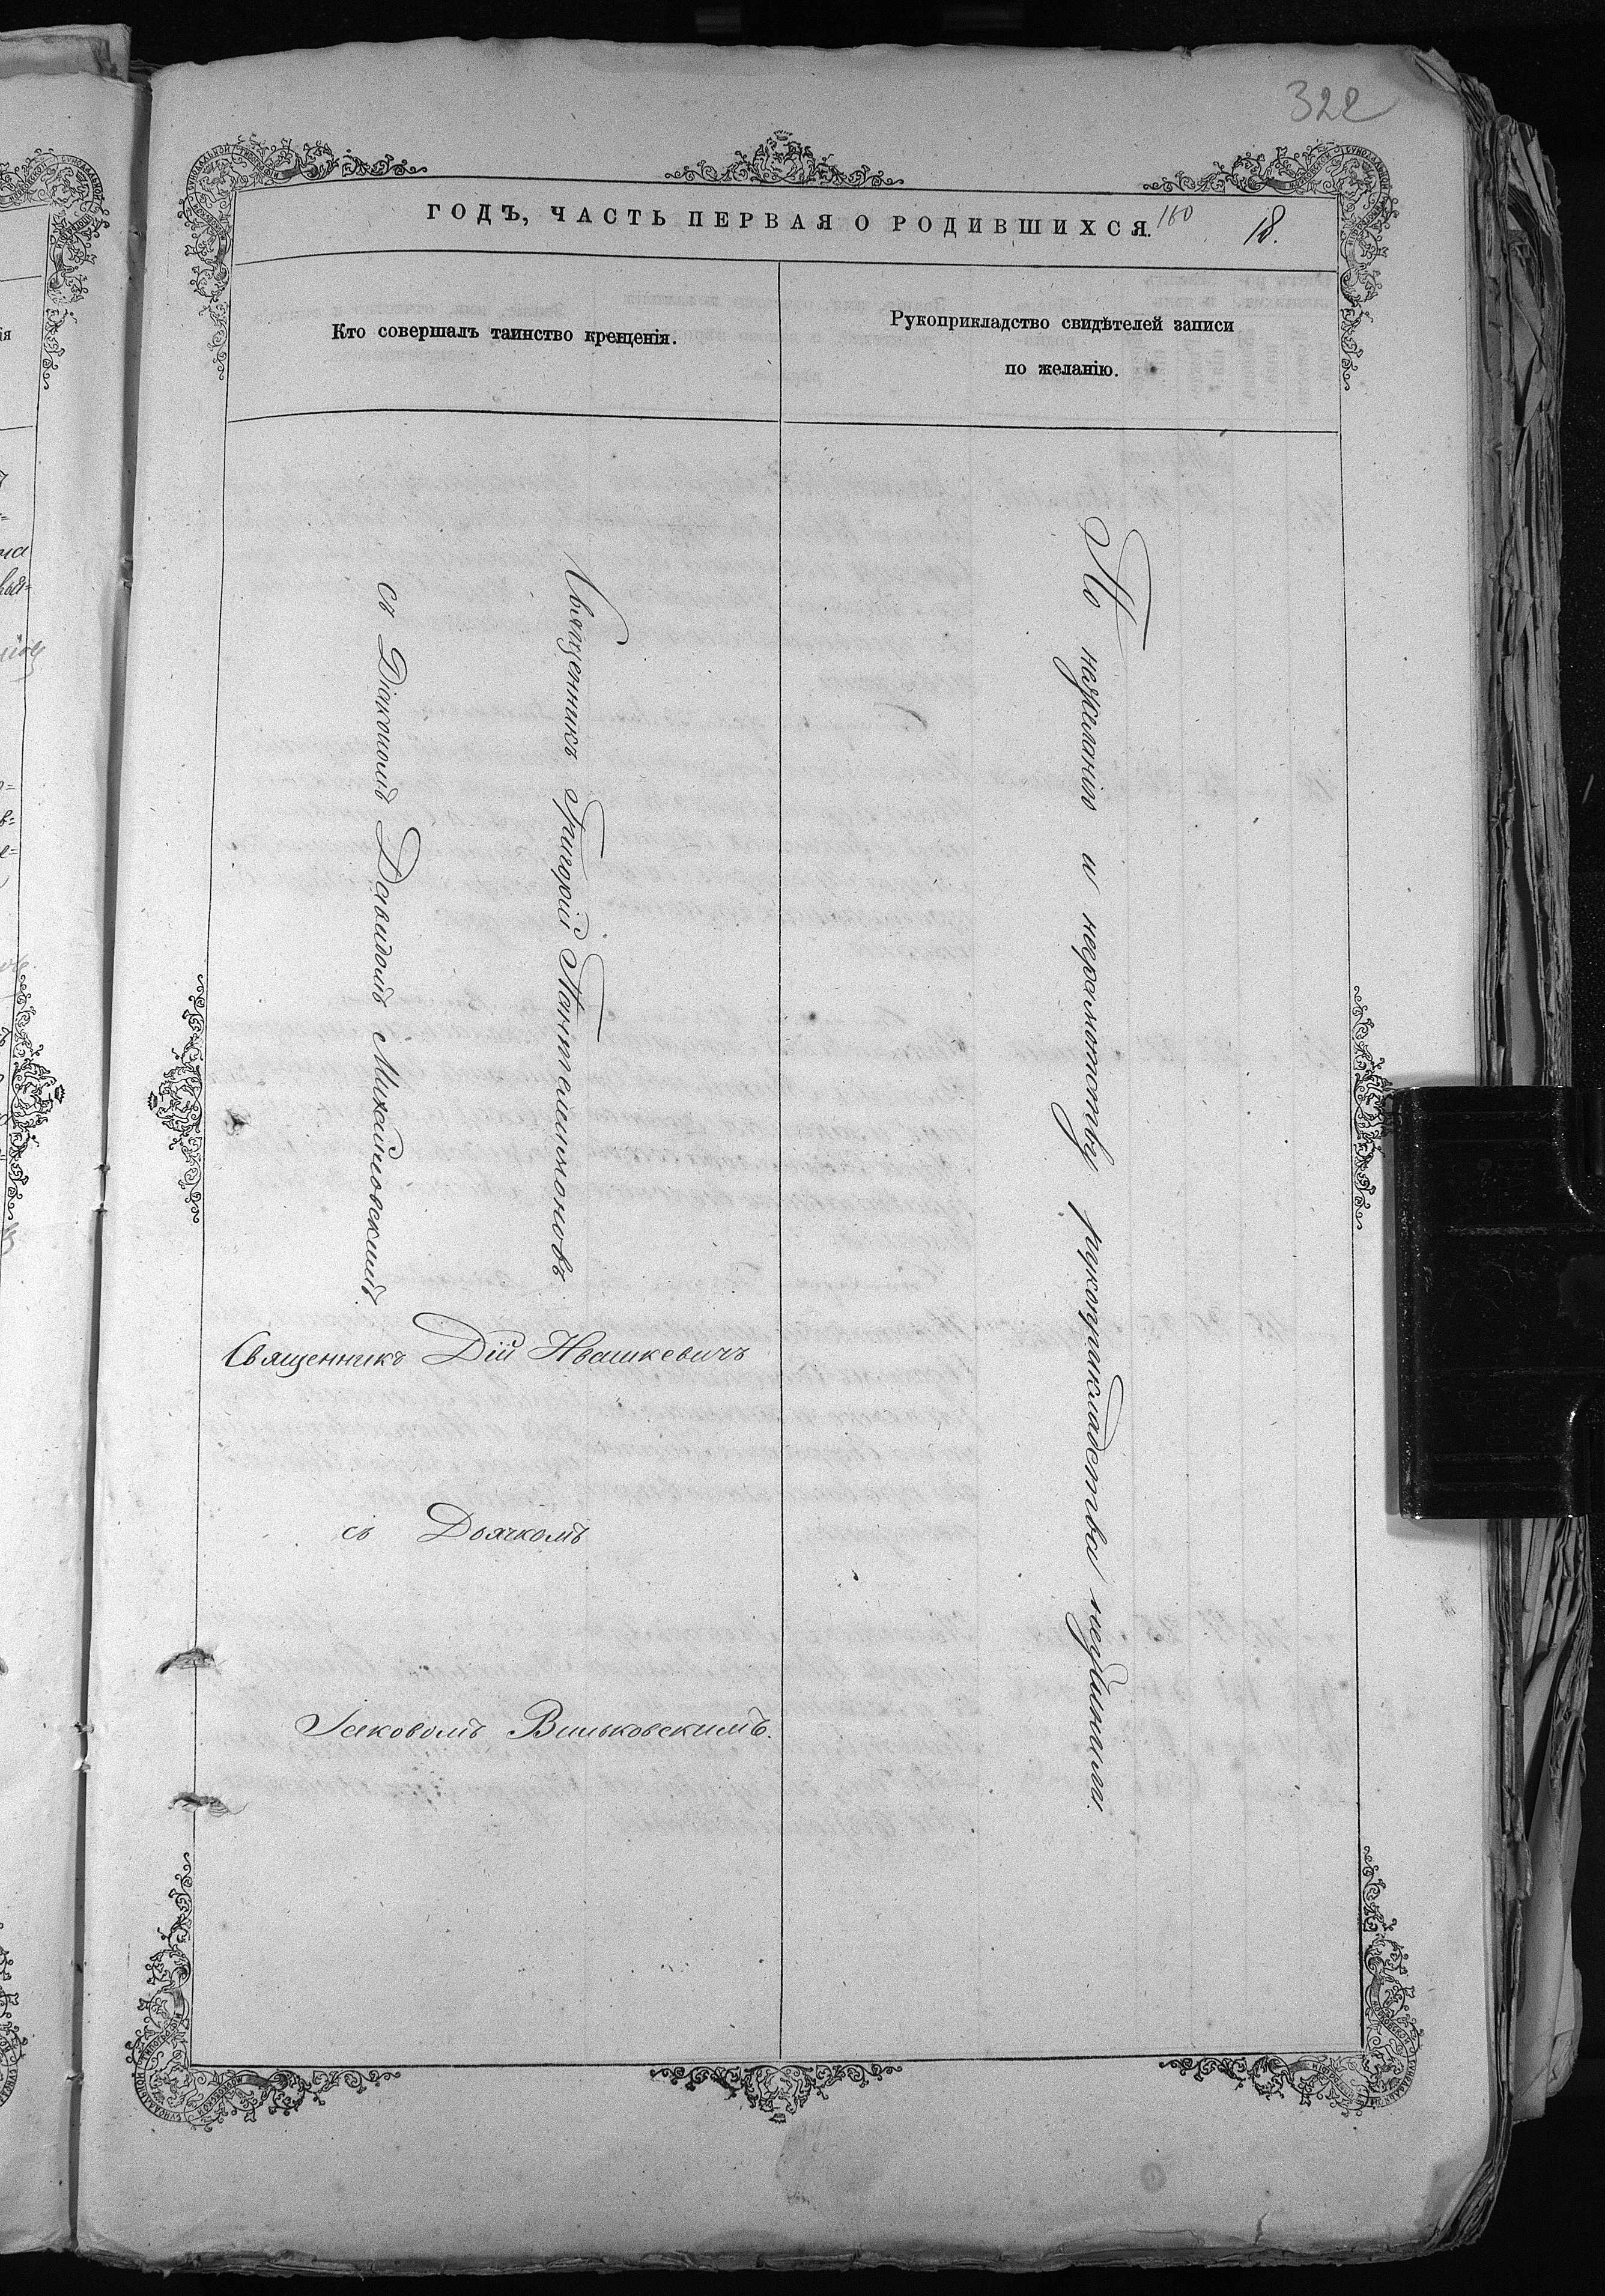 322
ГОДЪ, ЧАСТЬ ПЕРВАЯ О РОДИВШИХСЯ. 160 18.
Кто совершалъ таинство крещенія.
Рукоприкладство свидѣтелей записи
по желанію.
Священникъ Григорій Пантелимоновъ
съ Діакономъ Давидомъ Михайловскимъ.
Священникъ Дій Ивашкевичъ
съ Дьячкомъ
Іаковомъ Вильковскимъ.
По нежеланію и неграмотству рукоприкладства неучинили.